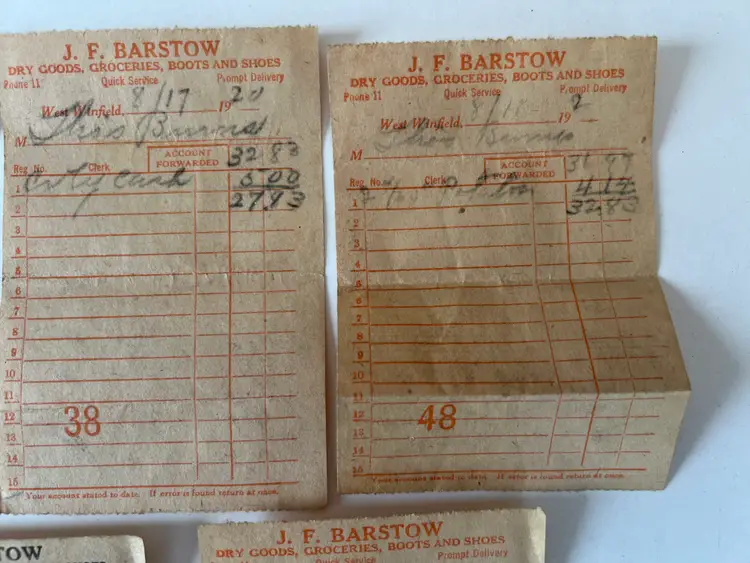 J. F. BARSTOW
DRY GOODS, GROCERIES, BOOTS AND SHOES
Phone 11 Quick Service Prompt Delivery
West Winfield, 8/17 1920
M Thos Burns
ACCOUNT FORWARDED 32 83
Reg. No. Clerk
1 By Cash 5 00
2 27 83
3
4
5
6
7
8
9
10
11
12
13
14
15
38
Your account stated to date. If error is found return at once.
J. F. BARSTOW
DRY GOODS, GROCERIES, BOOTS AND SHOES
Phone 11 Quick Service Prompt Delivery
West Winfield, 192
M Thos Burns
ACCOUNT FORWARDED
Reg. No. Clerk
1
2 32 83
3
4
5
6
7
8
9
10
11
12
13
14
15
48
Your account stated to date. If error is found return at once.
TOW
J. F. BARSTOW
DRY GOODS, GROCERIES, BOOTS AND SHOES
Quick Service Prompt Delivery